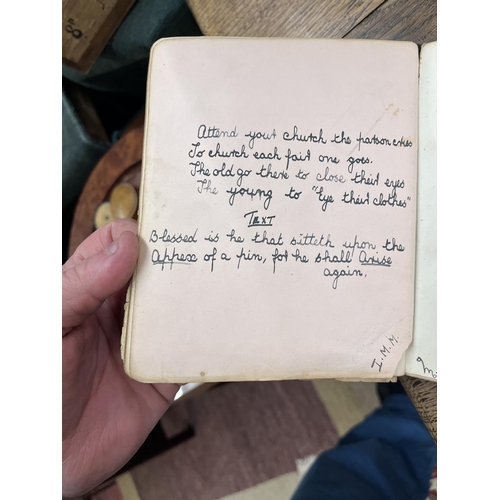 8°
Attend your church the parson cries
To church each fair one goes.
The old go there to close their eyes
The young to "Eye their clothes"
TEXT
Blessed is he that sitteth upon the
Appex of a pin, for he shall Arise
again.
I.M.M.